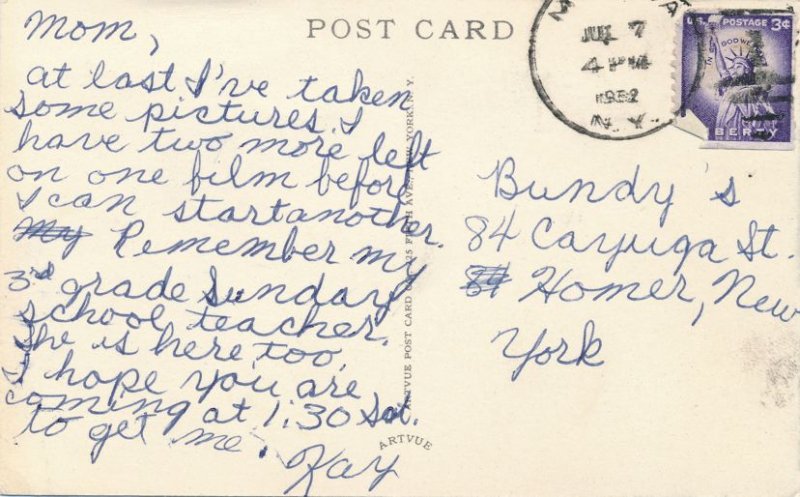 POST CARD
Mom,
at last I've taken
some pictures. I
have two more left
on one film before
I can start another.
My Remember my
3rd grade Sunday
school teacher.
She is here, too.
I hope you are
coming at 1:30 Sat.
to get me.
Kay
ARTVUE POST CARD CO. 225 FIFTH AVE., NEW YORK, N.Y.
ARTVUE
JUL 7
4 PM
N.Y.
U.S. POSTAGE 3¢
IN GOD WE
LIBERTY
Bundy's
84 Cayuga St.
84 Homer, New
York